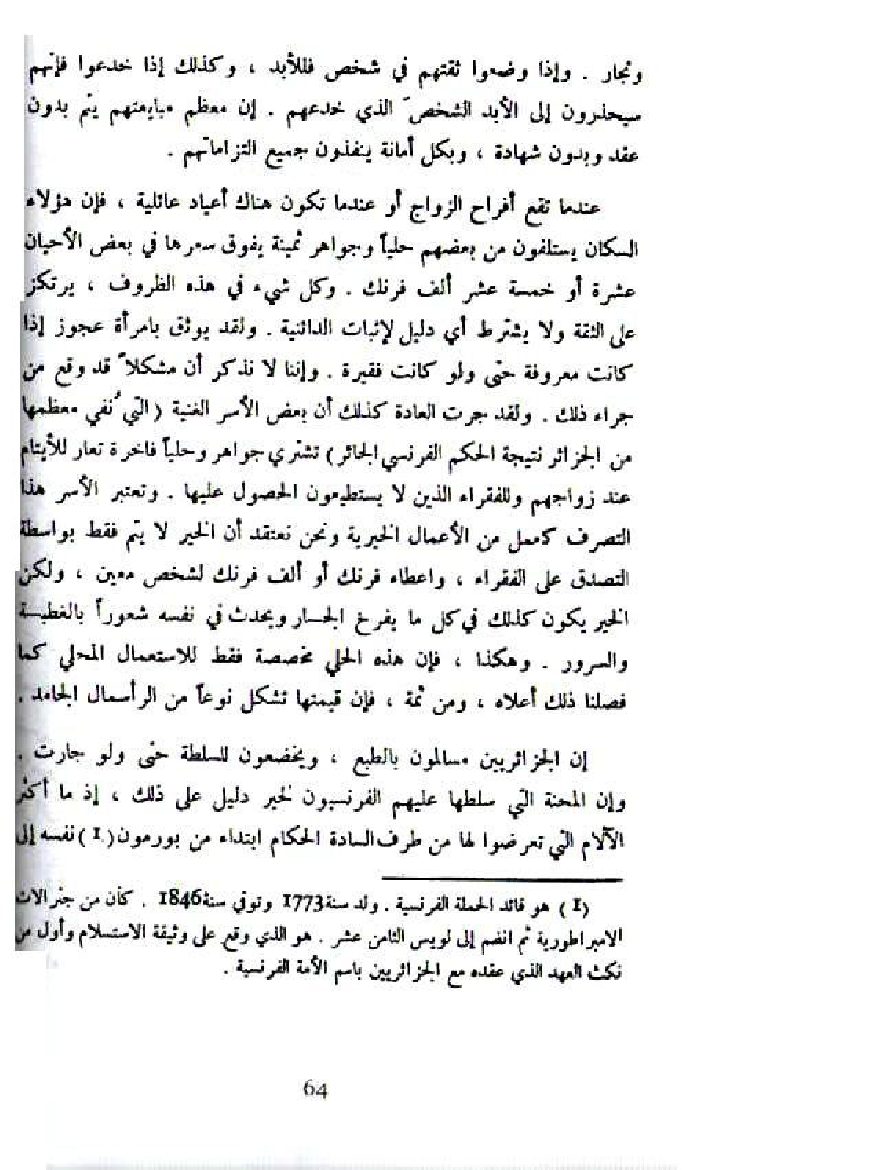 وتجار . وإذا وضعوا ثقتهم في شخص فللأبد ، وكذلك إذا خدعوا فإنهم
سيحذرون إلى الأبد الشخصَ الذي خدعهم . إن معظم مبايعتهم يتم بدون
عقد وبدون شهادة ، وبكل أمانة ينفذون جميع التزاماتهم .
عندما تقع أفراح الزواج أو عندما تكون هناك أعياد عائلية ، فإن هؤلاء
السكان يستلفون من بعضهم حلياً وجواهر ثمينة يفوق سعرها في بعض الأحيان
عشرة أو خمسة عشر ألف فرنك . وكل شيء في هذه الظروف ، يرتكز
على الثقة ولا يشترط أي دليل لإثبات الدائنية . ولقد يوثق بامرأة عجوز إذا
كانت معروفة حتى ولو كانت فقيرة . وإننا لا نذكر أن مشكلاً قد وقع من
جراء ذلك . ولقد جرت العادة كذلك أن بعض الأسر الغنية ( التي نُفي معظمها
من الجزائر نتيجة الحكم الفرنسي الجائر ) تشتري جواهر وحلياً فاخرة تعار للأيتام
عند زواجهم وللفقراء الذين لا يستطيعون الحصول عليها . وتعتبر الأسر هذا
التصرف كعمل من الأعمال الخيرية ونحن نعتقد أن الخير لا يتم فقط بواسطة
التصدق على الفقراء ، واعطاء فرنك أو ألف فرنك لشخص معين ، ولكن
الخير يكون كذلك في كل ما يفرخ الجسار ويحدث في نفسه شعوراً بالغطبسة
والسرور . وهكذا ، فإن هذه الحلي مخصصة فقط للاستعمال المحلي كما
فصلنا ذلك أعلاه ، ومن ثمة ، فإن قيمتها تشكل نوعاً من الرأسمال الجامد .
إن الجزائريين مسالمون بالطبع ، ويخضعون للسلطة حتى ولو جارت .
وإن المحنة التي سلطها عليهم الفرنسيون لخير دليل على ذلك ، إذ ما أكثر
الآلام التي تعرضوا لها من طرف السادة الحكام ابتداء من بورمون (1) نفسه إلى
(1) هو قائد الحملة الفرنسية . ولد سنة 1773 وتوفي سنة 1846 . كان من جنرالات
الامبراطورية ثم انضم إلى لويس الثامن عشر . هو الذي وقع على وثيقة الاستسلام وأول من
نكث العهد الذي عقده مع الجزائريين باسم الأمة الفرنسية .
64